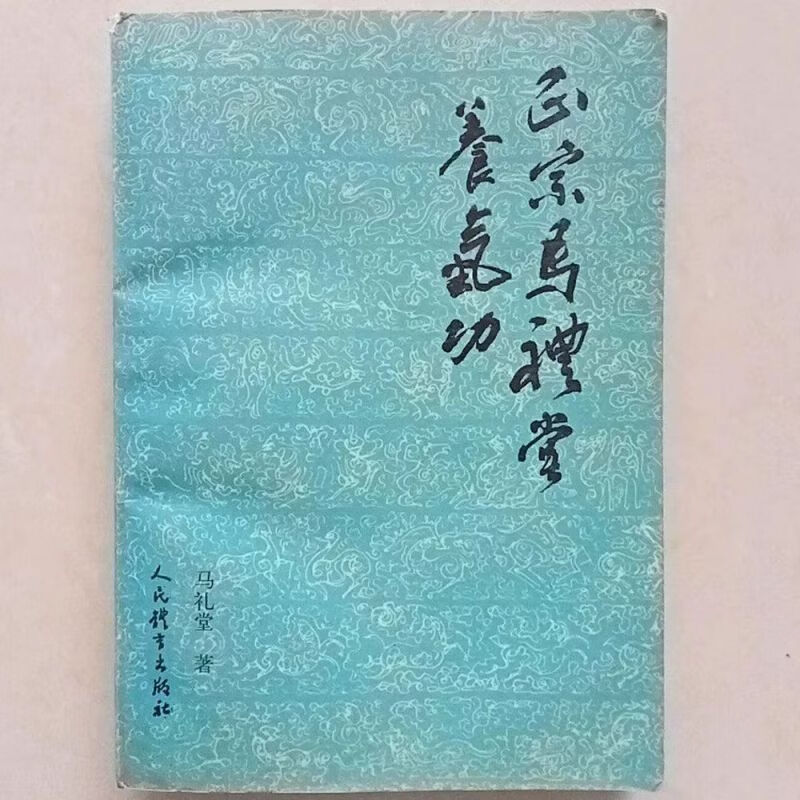 正宗马禮堂
養氣功
马礼堂 著
人民體育出版社